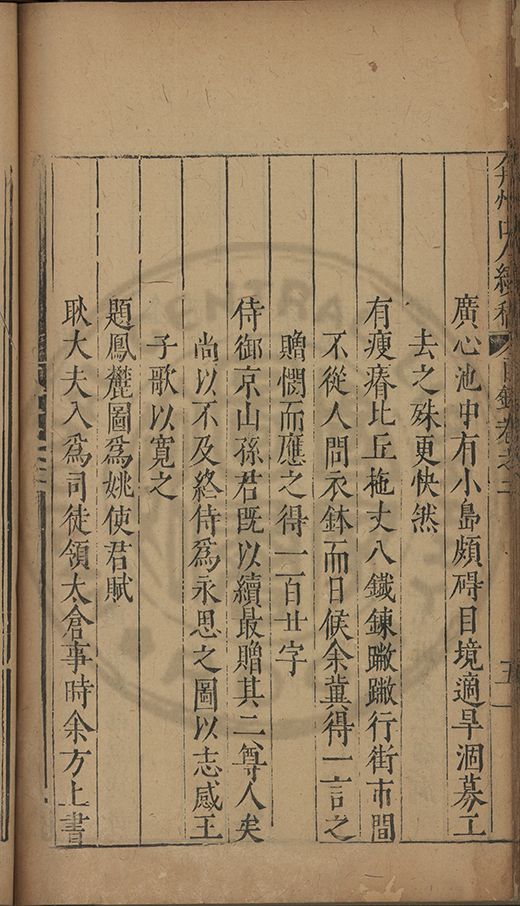 弇州山人續稿 目錄卷之二 五
廣心池中有小島頗碍目境適旱涸募工
去之殊更快然
有瘦瘠比丘拖丈八鐵鍊蹩躠行街市間
不從人問衣鉢而日候余冀得一言之
贈憫而應之得一百廿字
侍御京山孫君既以續最贈其二尊人矣
尚以不及終侍爲永思之圖以志感王
子歌以寬之
題鳳麓圖爲姚使君賦
耿大夫入爲司徒領太倉事時余方上書